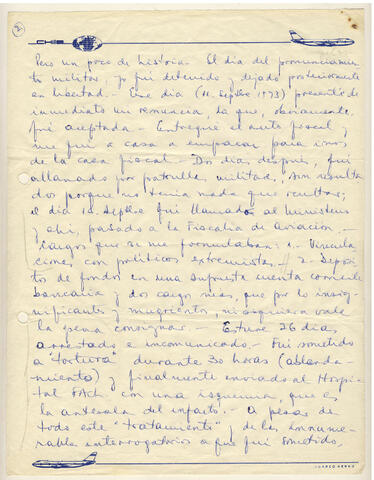 2
Pero un poco de historia. El día del pronunciamien
to militar, yo fui detenido y dejado posteriormente
en libertad.- Ese día (11. Septbre 1973) presenté de
inmediato mi renuncia, la que, obviamente,
fué aceptada.- Entregué el auto fiscal y
me fuí a casa a empacar para irnos
de la casa fiscal.- Dos días después, fuí
allanado por patrulla militar, sin resulta
dos porque no tenía nada que ocultar;
el día 14 Septbre fuí llamado al Ministerio
y ahí, pasado a la Fiscalía de Aviación.-
Cargos que se me formulaban: 1.- Vincula
ciones con políticos extremistas.- 2.- Depósi
tos de fondos en una supuesta cuenta corriente
bancaria y dos cargos más, que por lo insig-
nificantes y mugrientos, ni siquiera vale
la pena consignar.- Estuve 26 días
arrestado e incomunicado. Fuí sometido
a "tortura" durante 30 horas (ablanda-
miento) y finalmente enviado al Hospi-
tal FACh. con una isquemia, que es
la antesala del infarto.- A pesar de
todo este "tratamiento" y de los innume-
rables interrogatorios a que fuí sometido,